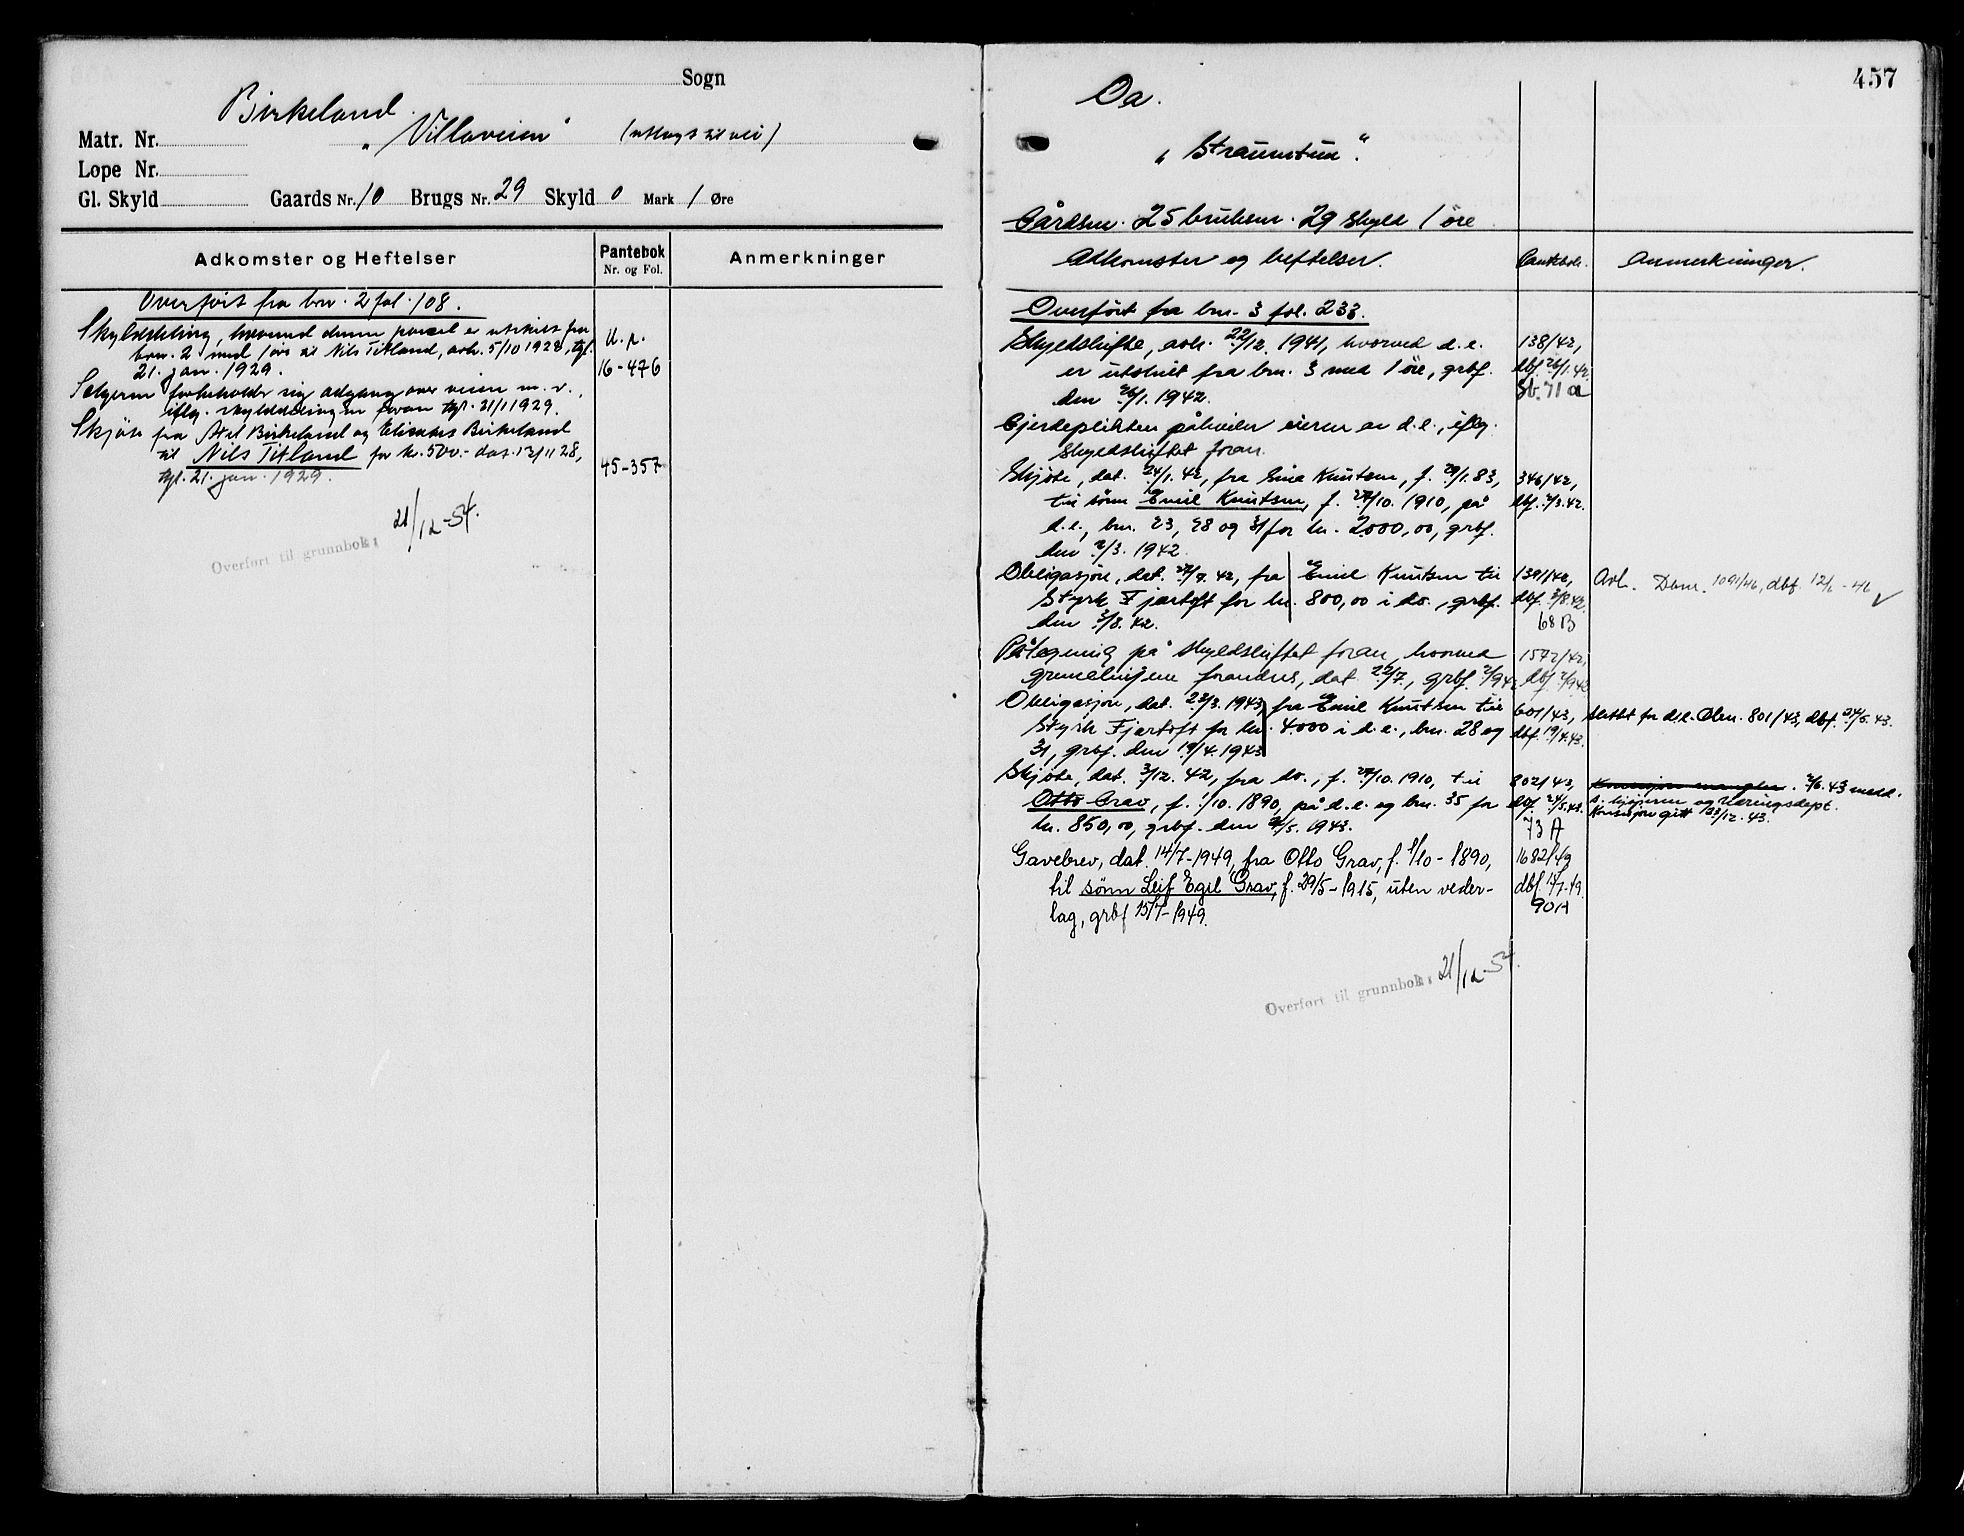 Sogn
Birkeland
Matr. Nr. „Villaveien" (utlagt til vei)
Lope Nr.
Gl. Skyld Gaards Nr. 10 Brugs Nr. 29 Skyld 0 Mark 1 Øre
Adkomster og Heftelser Pantebok Nr. og Fol. Anmerkninger
Overført fra brn. 2 fol. 108.
Skylddeling, hvorved denne parcel er utskilt fra U. p.
brn. 2 med 1 øre til Nils Titland, avh. 5/10 1928, tgl.
21. jan. 1929. 16-476
Selgeren forbeholder sig adgang over veien m. v.,
iflg. skylddelingen foran tgl. 21/1 1929.
Skjøte fra Birkeland og Birkeland
til Nils Titland for kr. 500.- dat. 13/11 28, 45-357
tgl. 21. jan. 1929.
Overført til grunnbok: 21/12-54.
457
Oa.
„Straumtun".
Gårdsnr. 25 bruksnr. 29 skyld 1 øre
Adkomster og heftelser. Pantebok. Anmerkninger.
Overført fra brn. 3 fol. 233.
Skyldskifte, avh. 22/12. 1941, hvorved d. e. 138/42,
er utskilt fra brn. 3 med 1 øre, grbf. dbf. 26/1.42.
den 26/1. 1942. Sb. 71 a
Gjerdeplikten påhviler eieren av d. e., iflg.
skyldskiftet foran.
Skjøte, dat. 24/1. 42, fra Knutsen, f. 29/1. 83, 346/42,
til sønn Emil Knutsen, f. 27/10. 1910, på dbf. 2/3.42.
d. e., brn. 23, 28 og 31 for kr. 2000,00, grbf.
den 2/3. 1942.
Obligasjon, dat. 27/7. 42, fra Emil Knutsen til 1391/42, Avl. Dnr. 1091/46, dbf. 12/6-46
Styrk Fjørtoft for kr. 800,00 i do., grbf. dbf. 3/8.42.
den 3/8. 42. 68 B
Påtegning på skyldskiftet foran, hvorved 1572/42,
grenselinjene forandres, dat. 22/7, grbf. 2/9 42 dbf 2/9 42
Obligasjon, dat. 23/3. 1943, fra Emil Knutsen til 601/43, slettet for d.e. Dbnr. 801/43, dbf. 24/5. 43.
Styrk Fjørtoft for kr. 4000 i d. e., brn. 28 og dbf. 19/4.43.
31, grbf. den 19/4. 1943.
Skjøte, dat. 3/12. 42, fra do., f. 27/10. 1910, til 802/43, Konsesjon mangler. 2/6. 43 meld.
Otto Grav, f. 1/10. 1890, på d. e. og brn. 35 for dbf. 24/5.43. og Næringsdept.
kr. 850,00, grbf. den 24/5. 1943. 73 A Konsesjon gitt 23/12. 43.
Gavebrev, dat. 14/7-1949, fra Otto Grav, f. 1/10-1890, 1682/49
til sønn Leif Egil Grav, f. 29/5-1915, uten veder- dbf. 15/7-49.
lag, grbf 15/7-1949. 90 A
Overført til grunnbok: 21/12-54.